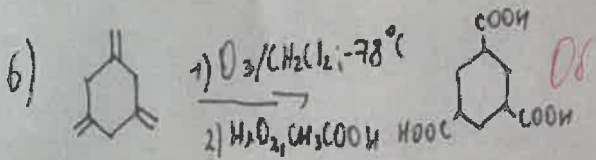 6)
1) O3/CH2Cl2; -78°C
2) H2O2, CH3COOH
COOH
HOOC
COOH